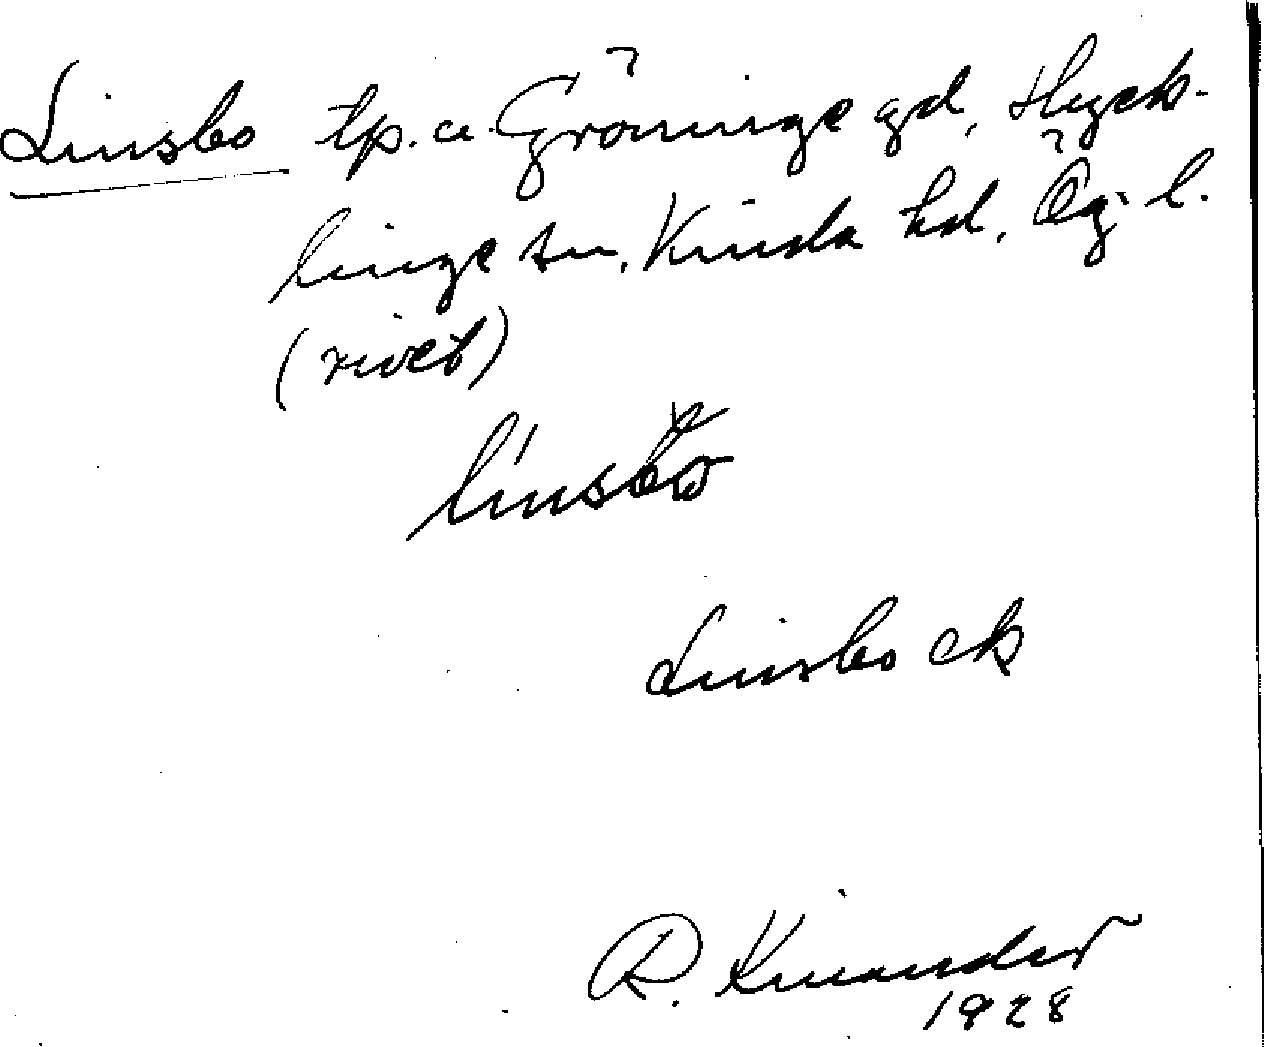 Linsbo tp. u. Gröninge gd, Hyck-
linge sn, Kinda hd, Ög. l.
(rivet)
linsbo
Linsbo ek
R. Kinander
1928